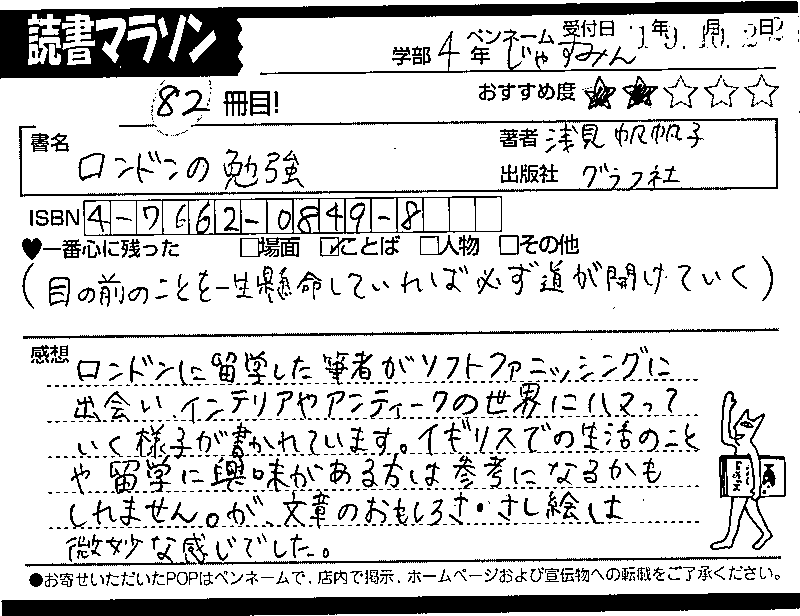 読書マラソン
学部 4 年 ペンネーム じゃすみん 受付日 19年10月22日
82 冊目! おすすめ度 ★★☆☆☆
書名 ロンドンの勉強 著者 浅見帆帆子
出版社 グラフ社
ISBN 4-7662-0849-8
♥一番心に残った □場面 ☑ことば □人物 □その他
(目の前のことを一生懸命していれば必ず道が開けていく)
感想 ロンドンに留学した筆者がソフトファニッシングに
出会い、インテリアやアンティークの世界にハマって
いく様子が書かれています。イギリスでの生活のこと
や留学に興味がある方は参考になるかも
しれません。が、文章のおもしろさ・さし絵は
微妙な感じでした。
●お寄せいただいたPOPはペンネームで、店内で掲示、ホームページおよび宣伝物への転載をご了承ください。